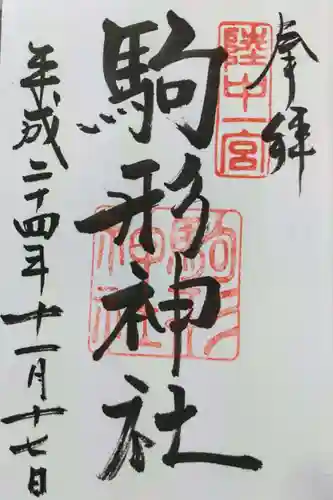 奉拝
陸中一宮
駒形神社
駒形
神社
平成二十四年十一月十七日